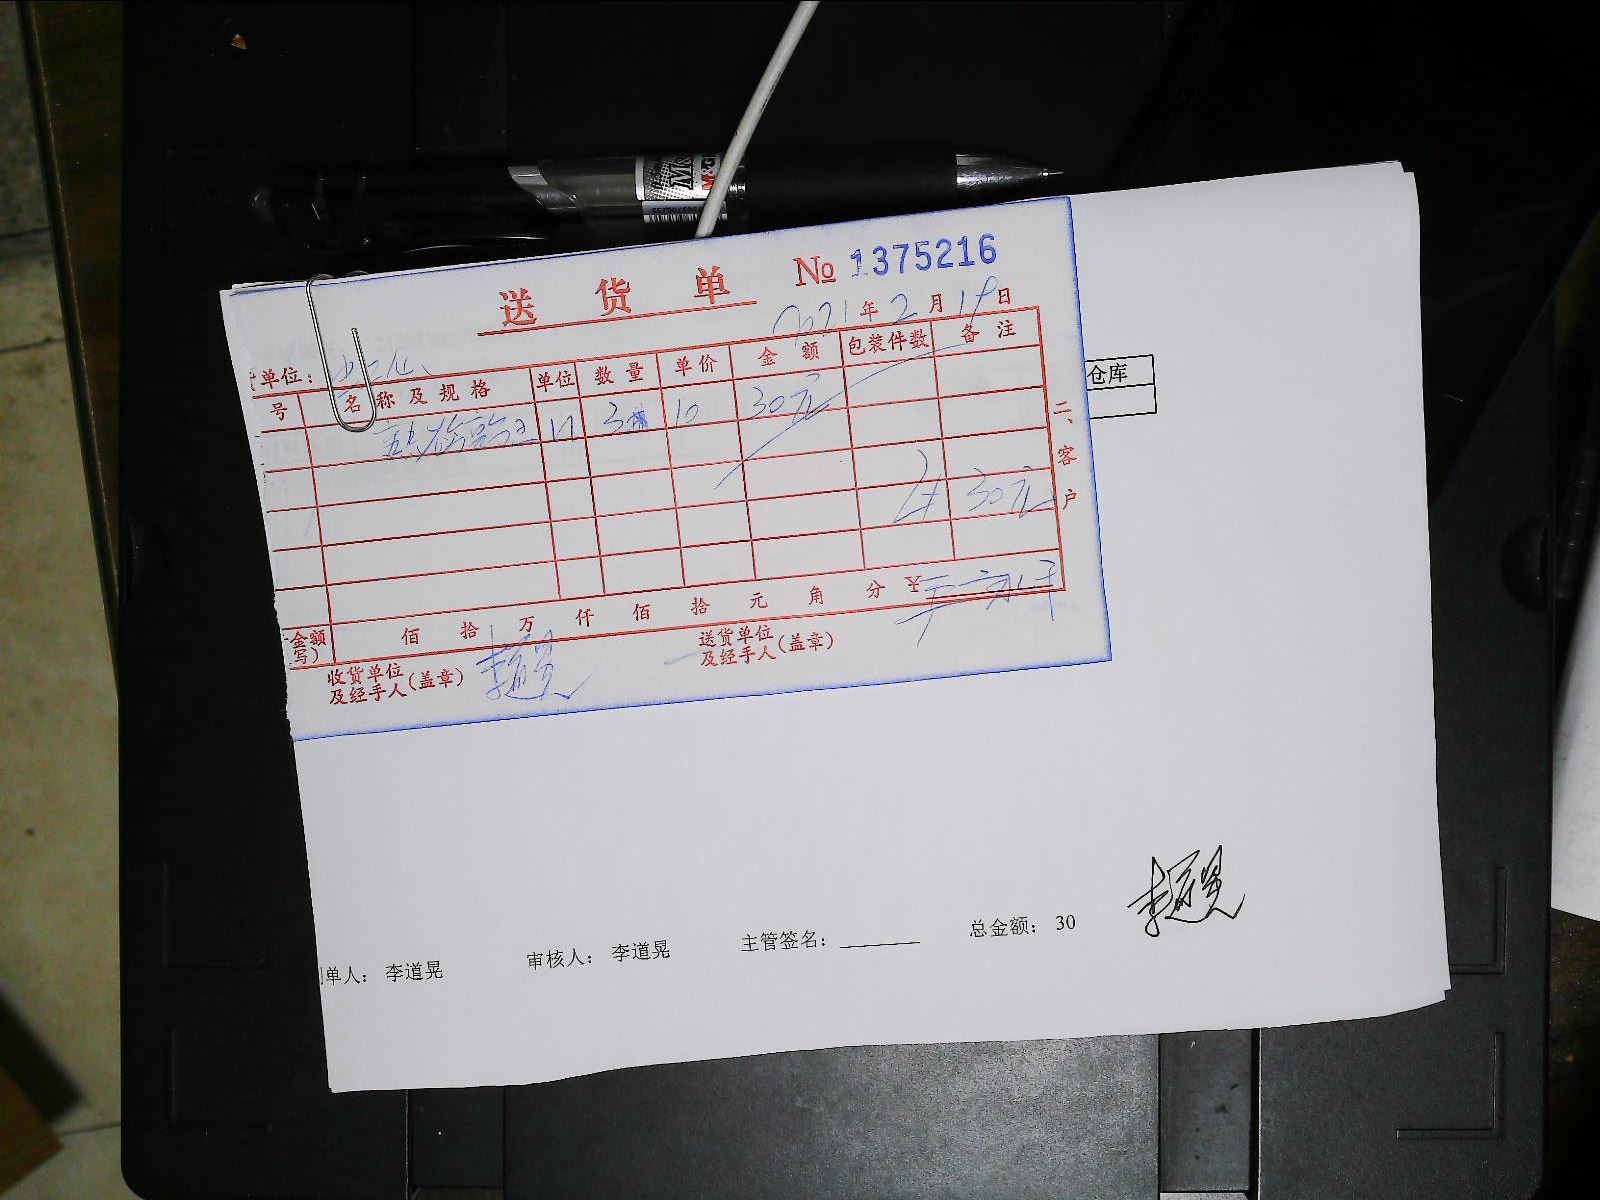 送货单 № 1375216
2021年2月19日
单位：
号 名称及规格 单位 数量 单价 金额 包装件数 备注
3 10 30元
共30元
金额 佰 拾 万 仟 佰 拾 元 角 分 ¥
写)
收货单位
及经手人(盖章)
送货单位
及经手人(盖章)
二、客户
仓库
单人： 李道晃 审核人： 李道晃 主管签名： 总金额： 30
李道晃